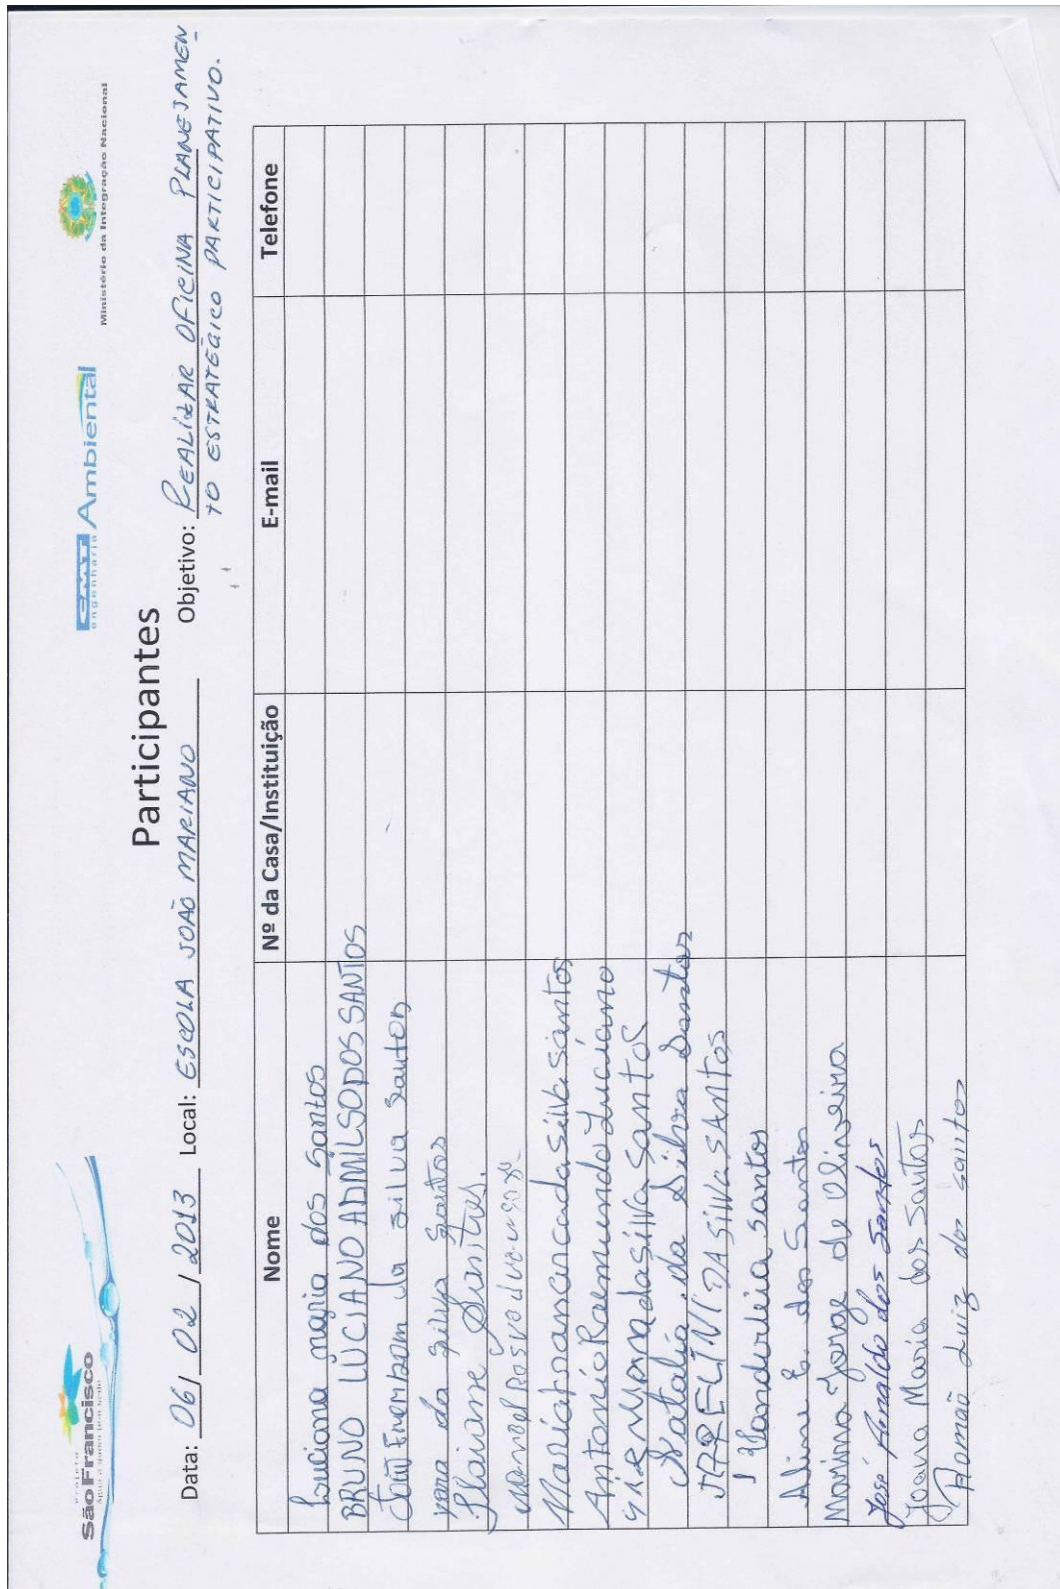 Projeto
São Francisco
Água a quem tem sede
CMT Ambiental
engenharia
Ministério da Integração Nacional
Participantes
Data: 06 / 02 / 2013 Local: ESCOLA JOÃO MARIANO Objetivo: REALIZAR OFICINA PLANEJAMEN-
TO ESTRATÉGICO PARTICIPATIVO.
Nome Nº da Casa/Instituição E-mail Telefone
Luciana maria dos Santos
BRUNO LUCIANO ADMILSO DOS SANTOS
da silva Santos
da Silva Santos
Santos.
Maria francisca da silva santos
Antonio Raemundo Luciano
da silva santos
Natalia da Silva Santos
DA SILVA SANTOS
Vanderleia Santos
Aline C. dos Santos
Marina Jorge de Oliveira
José Arnaldo dos Santos
Joana Maria dos Santos
Romão Luiz dos santos